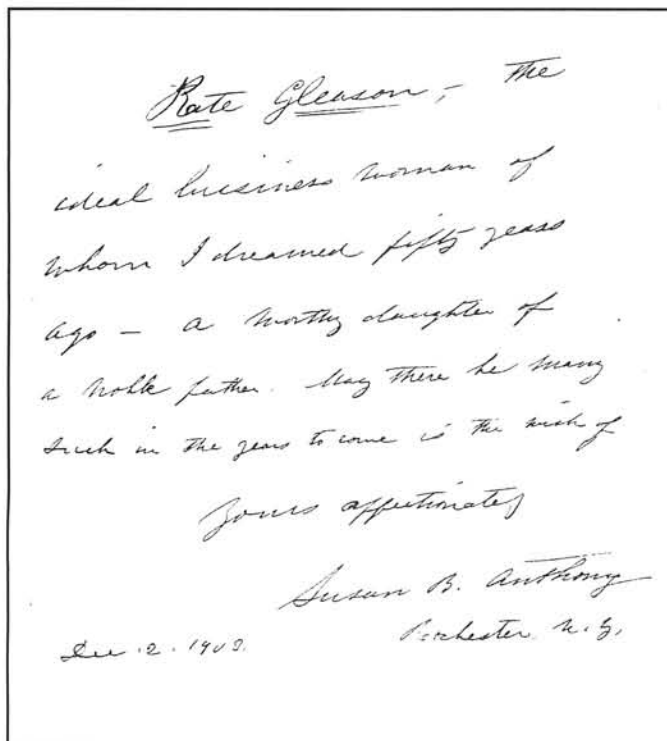 Kate Gleason, – the
ideal business woman of
whom I dreamed fifty years
ago – a worthy daughter of
a noble father. May there be many
such in the years to come is the wish of
Yours affectionately
Susan B. Anthony
Rochester, N. Y.
Dec. 2. 1903.